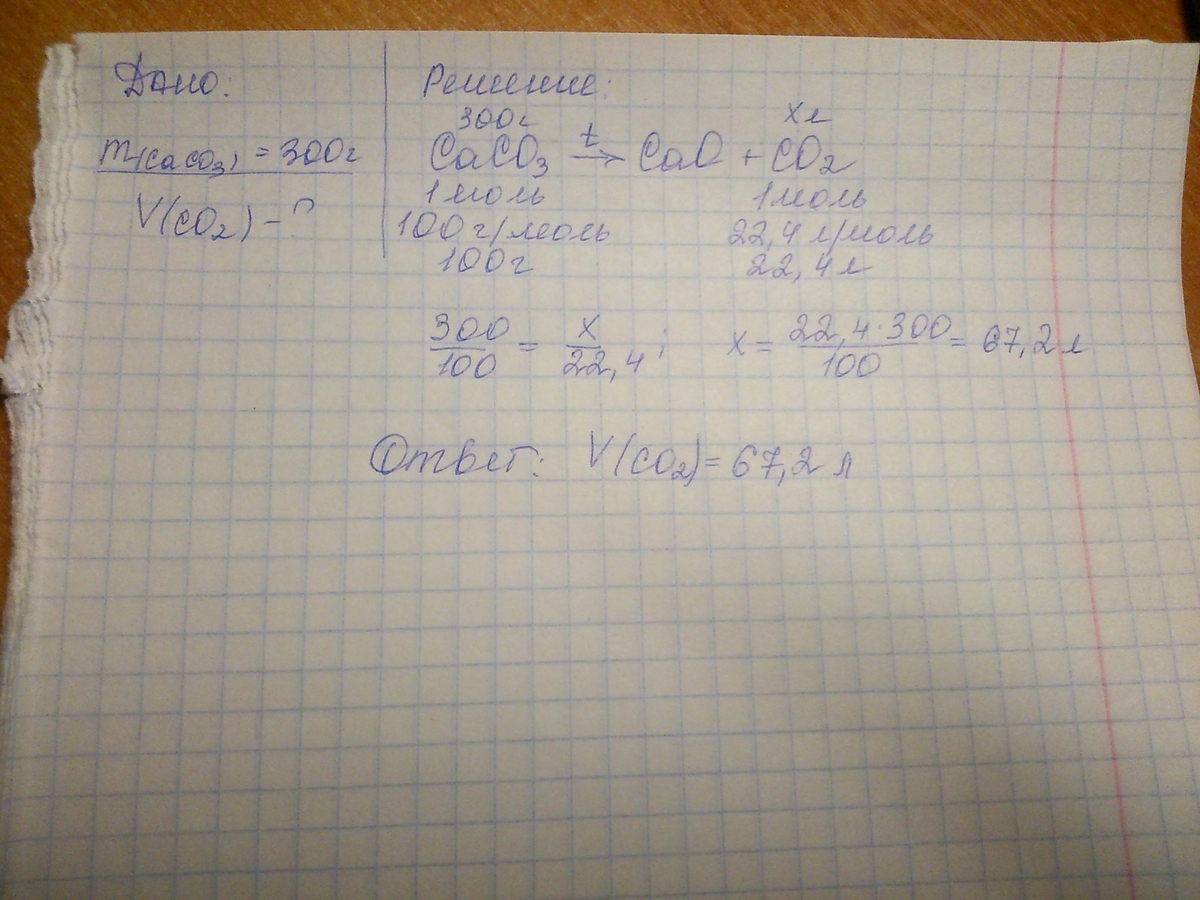 Дано:
m(CaCO3) = 300г
V(CO2) - ?
Решение:
300г xл
CaCO3 t→ CaO + CO2
1моль 1моль
100г/моль 22,4 л/моль
100г 22,4л
300/100 = x/22,4; x = 22,4·300/100 = 67,2 л
Ответ: V(CO2) = 67,2 л